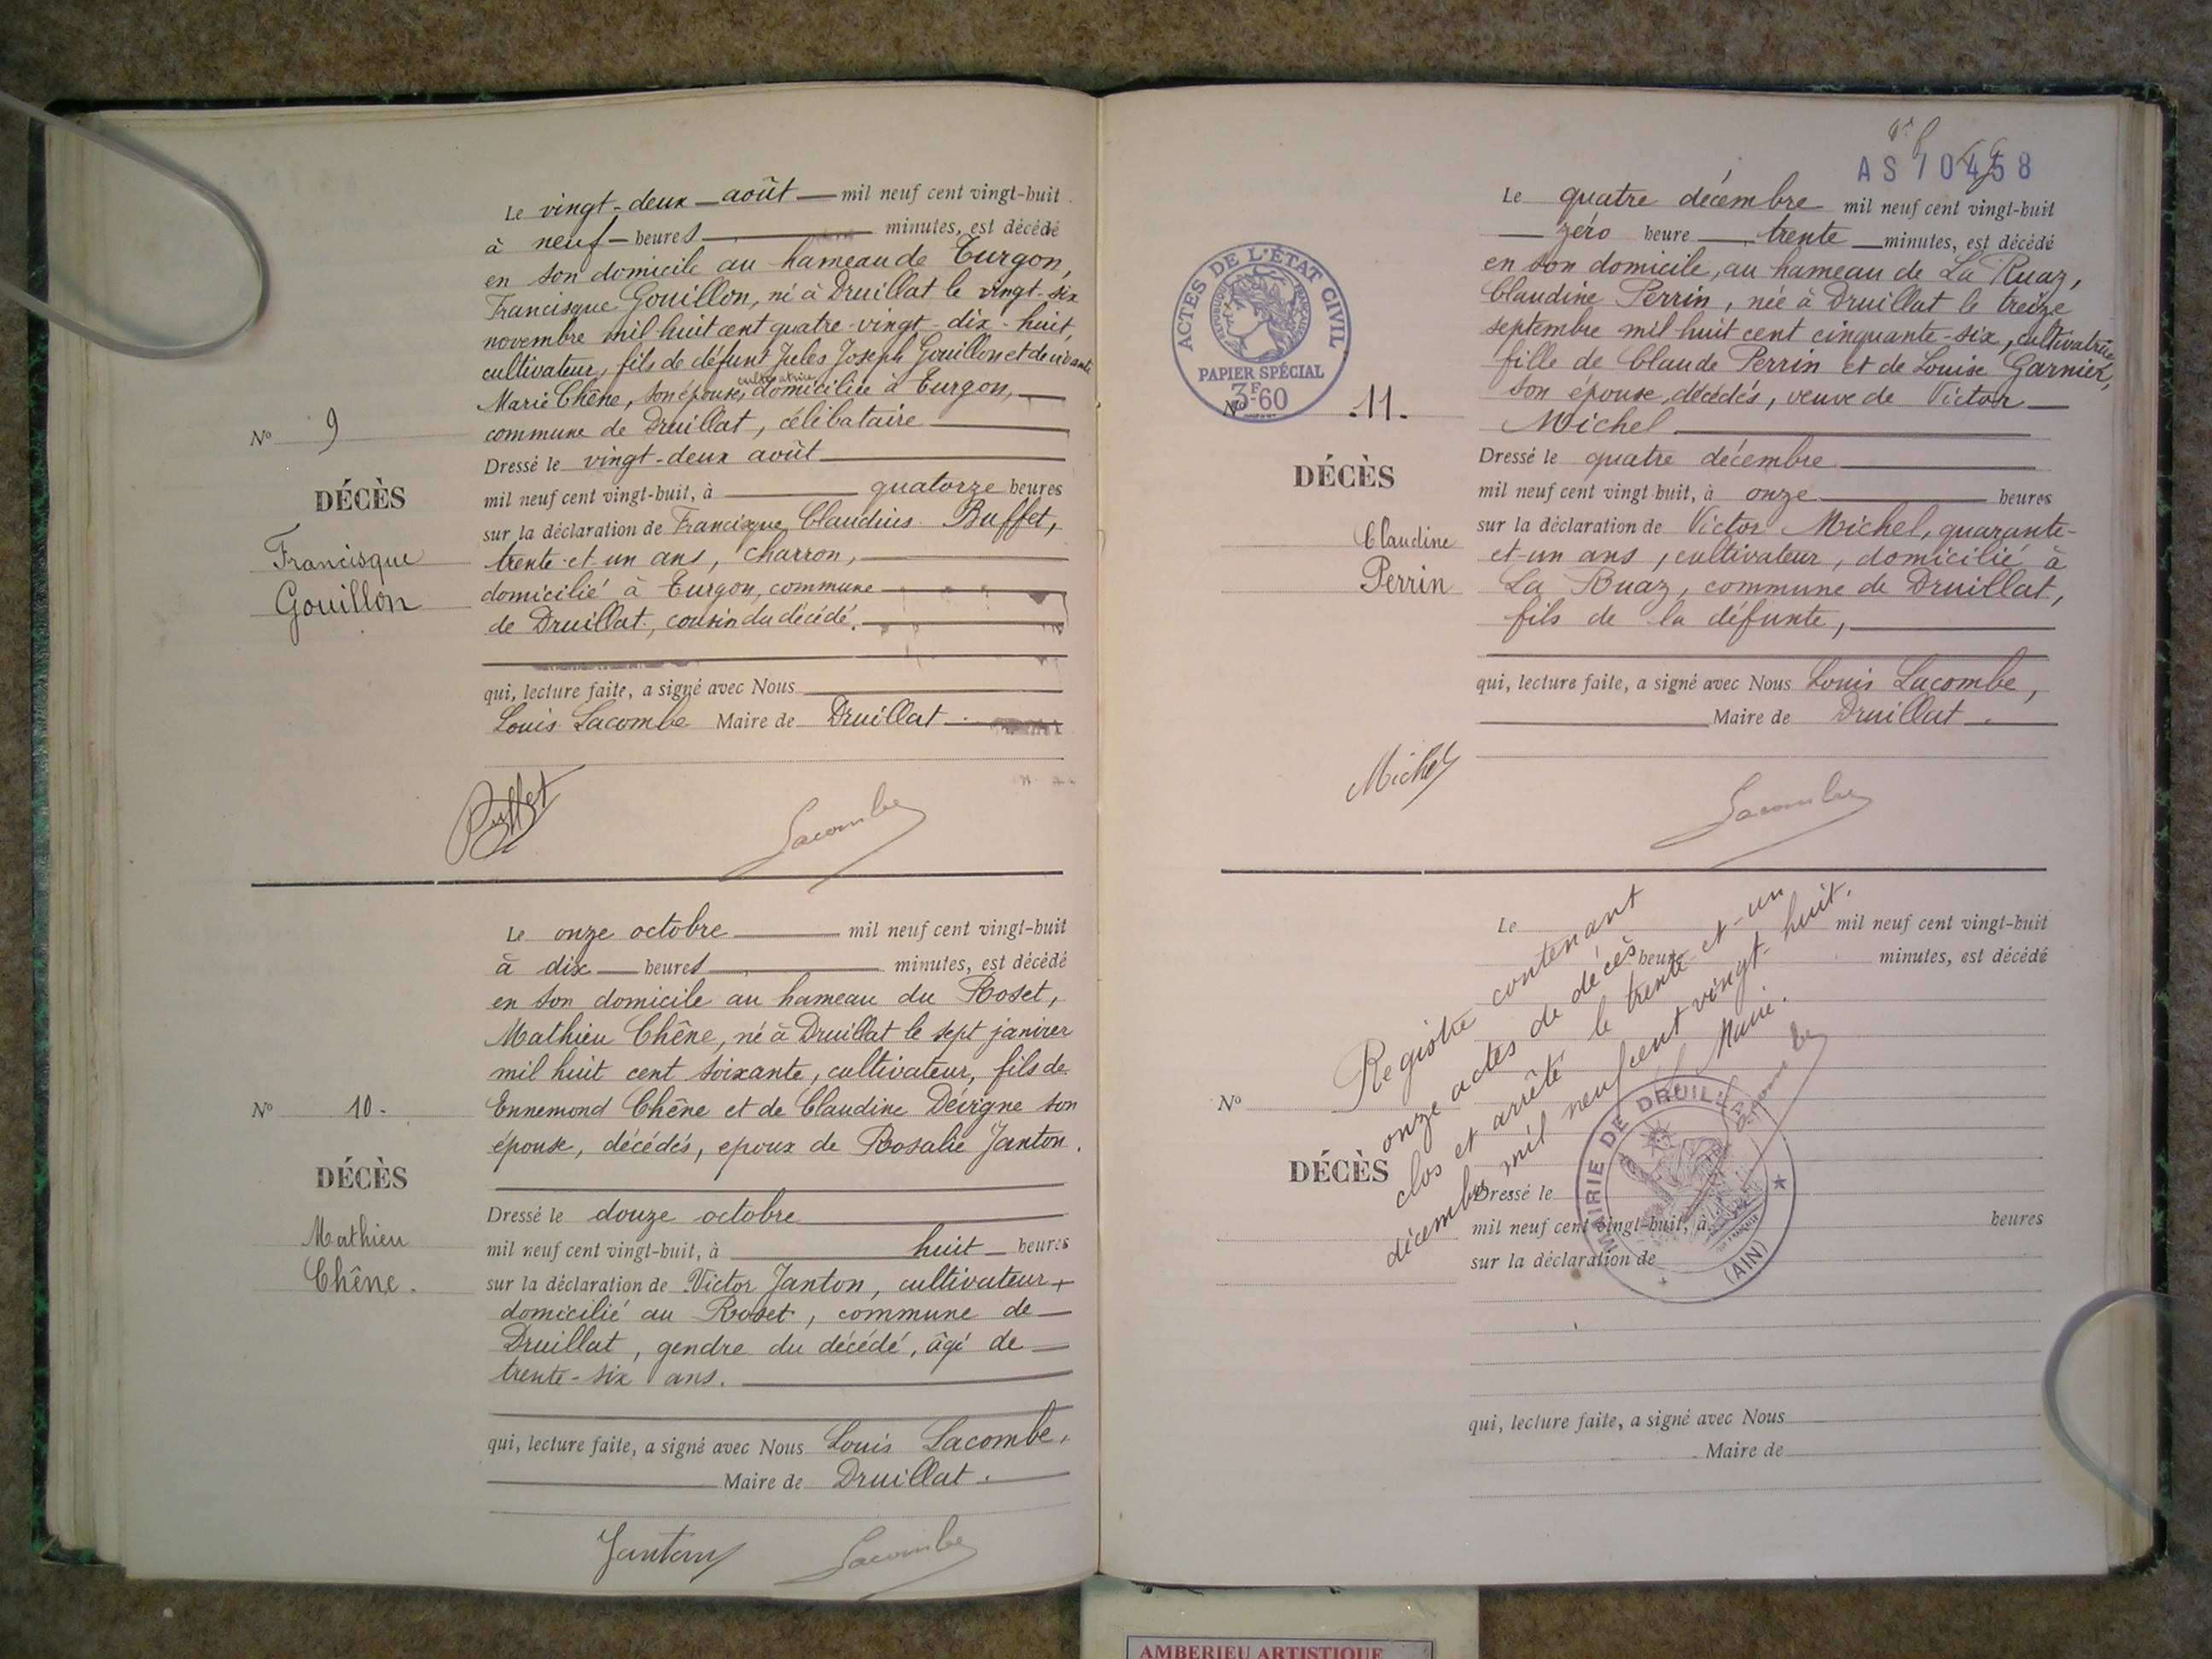 Le vingt-deux août mil neuf cent vingt-huit
à neuf heures minutes, est décédé
en son domicile au hameau de Turgon,
Francisque Gouillon, né à Druillat le vingt-six
novembre mil huit cent quatre-vingt-dix-huit,
cultivateur, fils de défunt Jules Joseph Gouillon et de vivante
Marie Chêne, son épouse, cultivatrice domiciliée à Turgon,
commune de Druillat, célibataire
Dressé le vingt-deux août
mil neuf cent vingt-huit, à quatorze heures
sur la déclaration de Francisque Claudius Buffet,
trente-et-un ans, charron,
domicilié à Turgon, commune
de Druillat, cousin du décédé.
qui, lecture faite, a signé avec Nous
Louis Lacombe Maire de Druillat.
Nº 9
DÉCÈS
Francisque
Gouillon
Buffet
Lacombe
Le onze octobre mil neuf cent vingt-huit
à dix heures minutes, est décédé
en son domicile au hameau du Roset,
Mathieu Chêne, né à Druillat le sept janvier
mil huit cent soixante, cultivateur, fils de
Ennemond Chêne et de Claudine Devigne son
épouse, décédés, epoux de Rosalie Janton.
Dressé le douze octobre
mil neuf cent vingt-huit, à huit heures
sur la déclaration de Victor Janton, cultivateur
domicilié au Roset, commune de
Druillat, gendre du décédé, âgé de
trente-six ans.
qui, lecture faite, a signé avec Nous Louis Lacombe,
Maire de Druillat.
Nº 10.
DÉCÈS
Mathieu
Chêne.
Janton
Lacombe
AS 70458
ACTES DE L'ÉTAT CIVIL
RÉPUBLIQUE FRANÇAISE
PAPIER SPÉCIAL
3F60
Le quatre décembre mil neuf cent vingt-huit
zéro heure trente minutes, est décédé
en son domicile, au hameau de La Ruaz,
Claudine Perrin, née à Druillat le treize
septembre mil huit cent cinquante-six, cultivatrice,
fille de Claude Perrin et de Louise Garnier,
son épouse, décédés, veuve de Victor
Michel
Dressé le quatre décembre
mil neuf cent vingt-huit, à onze heures
sur la déclaration de Victor Michel, quarante-
et-un ans, cultivateur, domicilié à
La Ruaz, commune de Druillat,
fils de la défunte,
qui, lecture faite, a signé avec Nous Louis Lacombe,
Maire de Druillat.
Nº 11.
DÉCÈS
Claudine
Perrin
Michel
Lacombe
Le mil neuf cent vingt-huit
heure minutes, est décédé
Nº
DÉCÈS
Dressé le
mil neuf cent vingt-huit, à heures
sur la déclaration de
qui, lecture faite, a signé avec Nous
Maire de
Registre contenant
onze actes de décès
clos et arrêté le trente-et-un
décembre mil neuf cent vingt-huit.
Le Maire.
Lacombe
MAIRIE DE DRUILLAT
(AIN)
AMBERIEU ARTISTIQUE